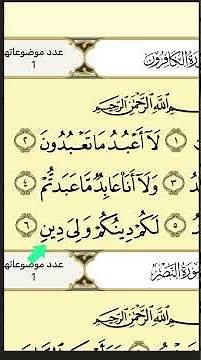 سورة الكافرون
عدد موضوعاتها
1
بِسْمِ اللَّهِ الرَّحْمَٰنِ الرَّحِيمِ
١ لَآ أَعْبُدُ مَا تَعْبُدُونَ ٢
٣ وَلَآ أَنَا۠ عَابِدٌ مَّا عَبَدتُّمْ ٤
٥ لَكُمْ دِينُكُمْ وَلِىَ دِينِ ٦
سورة النصر
عدد موضوعاتها
1
بِسْمِ اللَّهِ الرَّحْمَٰنِ الرَّحِيمِ